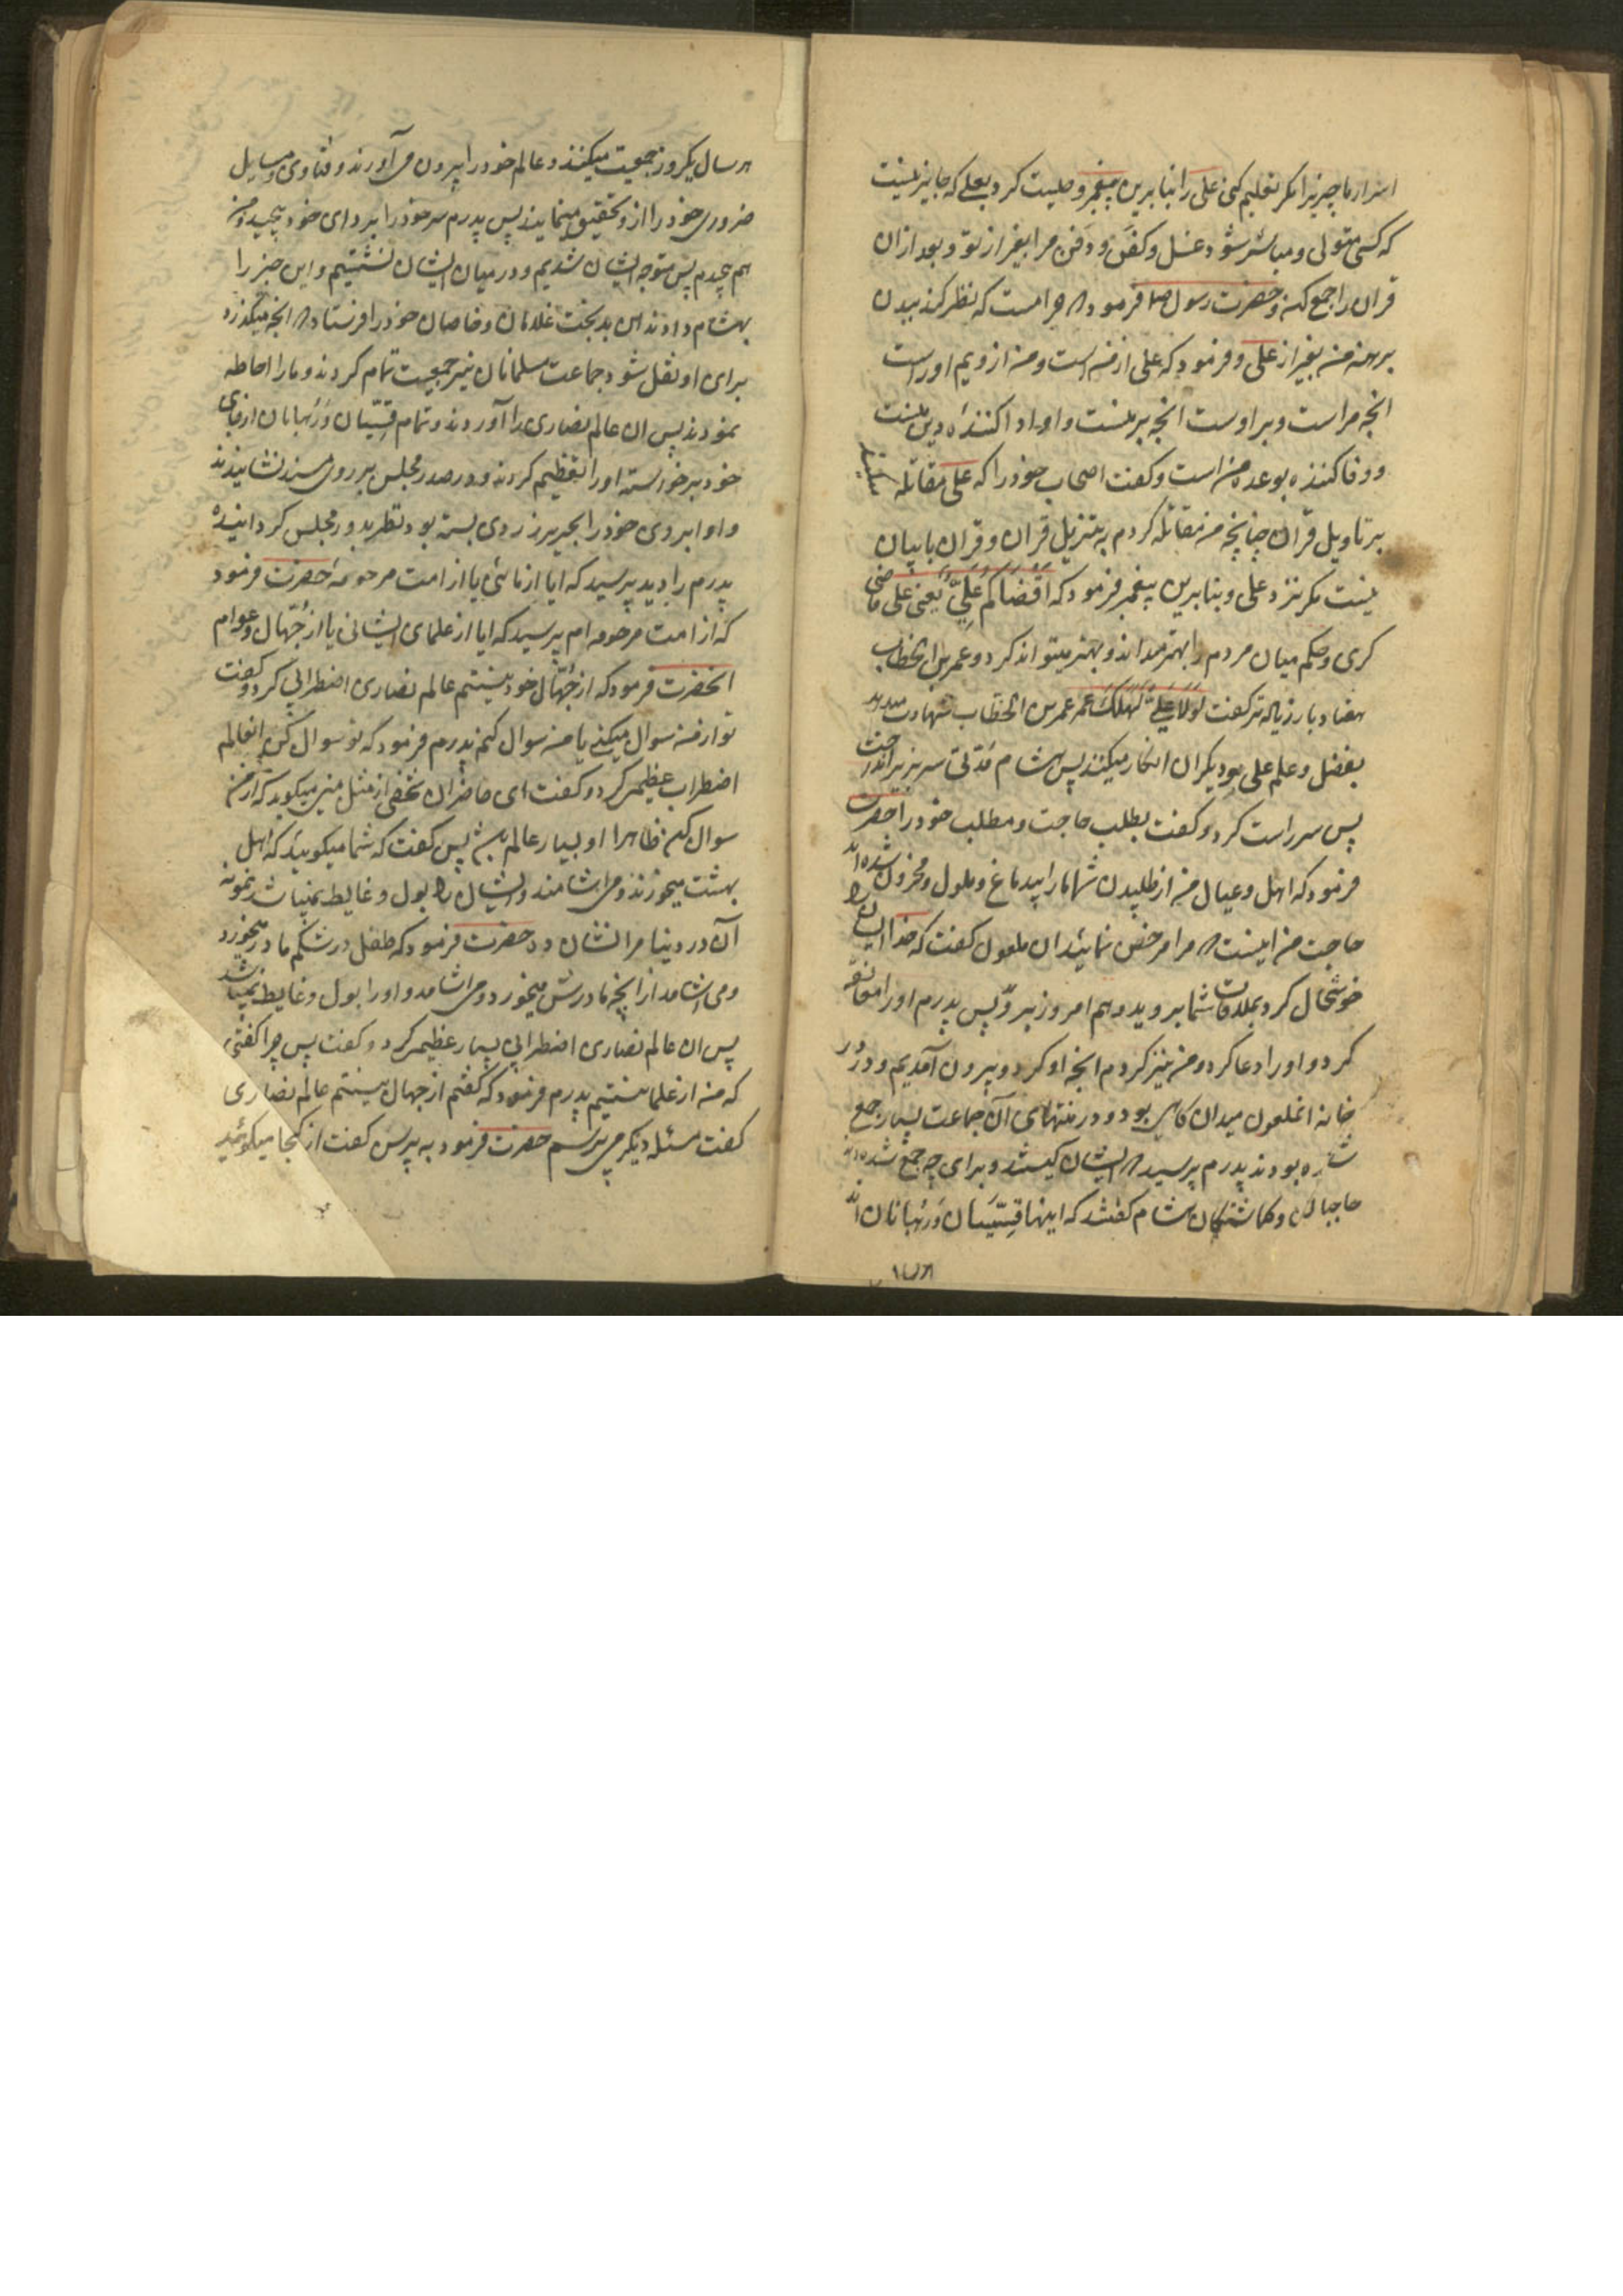 اسرار ما چیزیرا مکر تعلیم کنی علی را بنابرین پیغمبر وصیت کرد بعلی که جایز نیست
که کسی متولی و مباشر شود غسل و کفن و دفن مرا بغیر از تو و بعد از ان
قران را جمع کند و حضرت رسول فرموده حرامست که نظر کند ببدن
برهنه من بغیر از علی و فرمود که علی از منست و من از ویم اوراست
انچه مراست و بر اوست انچه بر منست و او ادا کننده دین منست
و وفا کننده بوعده من است و کفت اصحاب خود را که علی مقاتله
بر تاویل قران چنانچه من مقاتله کردم به تنزیل قران و قران با بیان
نیست مکر نزد علی و بنابرین پیغمبر فرمود که اَقضاکُم عَلیٌّ یعنی علی قاضی
کری و حکم میان مردم را بهتر میداند و بهتر میتواند کرد و عمر بن الخطاب
هفتاد بار زیاده تر کفت لَولا عَلیٌّ لَهَلَکَ عُمَر عمر بن الخطاب شهادت میدهد
بفضل و علم علی و دیکران انکار میکنند پس هشام مُدّتی سر بزیر انداخت
پس سر راست کرد و کفت بطلب حاجت و مطلب خود را حضرت
فرمود که اهل و عیال من از طلبیدن شما مارا بیدماغ و ملول و محزون شده اند
حاجت من اینست که مرا مرخص نمائید ان ملعون کفت که خدا ایشان را
خوشحال کرد بملاقات شما بروید و هم امروز برو پس پدرم اورا معانقه
کرد و اورا دعا کرد و من نیز کردم انچه او کرد و بیرون آمدیم و در در
خانه انملعون میدان کاهی بود و در منتهای آن جماعت بسیار جمع
شده بودند پدرم پرسید که ایشان کیستند و برای چه جمع شده اند
حاجبان و کماشتکان هشام کفتند که اینها قِسّیسان وَ رُهبانان اند
هر سال
هر سال یکروز جمعیت میکنند و عالم خود را بیرون می آورند و فتاوی و مسایل
ضروری خود را از او تحقیق مینمایند پس پدرم سر خود را بردای خود پیچید و من
هم پیچیدم پس متوجه ایشان شدیم و در میان ایشان نشستیم و این خبر را
بهشام دادند این بدبخت غلامان و خاصان خود را فرستاد که انچه میکذرد
برای او نقل شود جماعت مسلمانان نیز جمعیت تمام کردند و مارا احاطه
نمودند پس ان عالم نصاری را آوردند و تمام قِسّیسان وَ رُهبانان از جای
خود برخواسته اورا تعظیم کردند و در صدر مجلس بر روی مسند نشانیدند
و او ابروی خود را بحریر زردی بسته بود نظر بدور مجلس کردانیده
پدرم را دید پرسید که ایا از مائی یا از امت مرحومه حضرت فرمود
که از امت مرحومه ام پرسید که ایا از علمای ایشانی یا از جُهّال و عوام
انحضرت فرمود که از جُهّال خود نیستم عالم نصاری اضطرابی کرد و کفت
تو از من سوال میکنی یا من سوال کنم پدرم فرمود که تو سوال کن انعالم
اضطراب عظیمی کرد و کفت ای حاضران شخصی از مثل منی میکوید که از من
سوال کن ظاهرا او بسیار عالم باشد پس کفت که شما میکوئید که اهل
بهشت میخورند و می اشامند و ایشان را بول و غایط نمیباشد نمونه
آن در دنیا مرا نشان ده حضرت فرمود که طفل در شکم مادر میخورد
و می اشامد از انچه مادرش میخورد و می اشامد و اورا بول و غایط نمیباشد
پس ان عالم نصاری اضطرابی بسیار عظیم کرد و کفت پس چرا کفتی
که من از علما نیستیم پدرم فرمود که کفتم از جهال نیستم عالم نصاری
کفت مسئله دیکر می پرسم حضرت فرمود به پرس کفت از کجا میکوئید